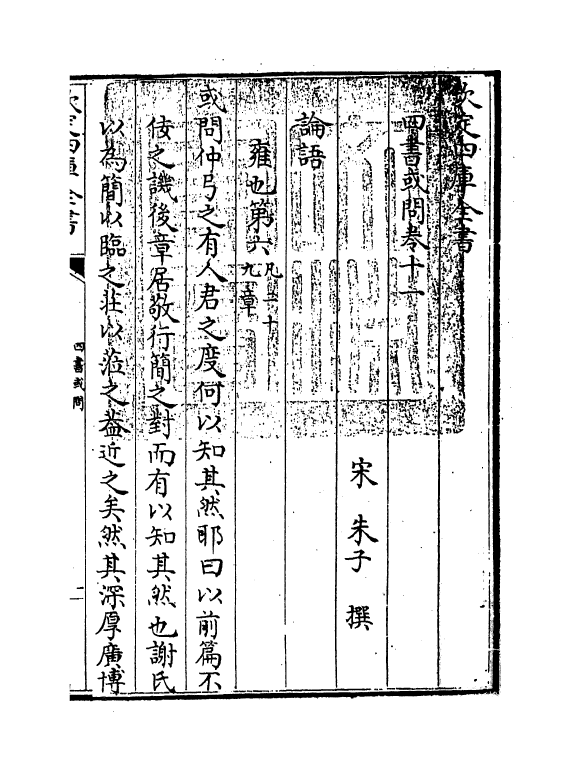 欽定四庫全書
四書或問卷十一
宋 朱子 撰
論語
雍也第六凡二十九章
或問仲弓之有人君之度何以知其然耶曰以前篇不
佞之譏後章居敬行簡之對而有以知其然也謝氏
以為簡以臨之莊以涖之葢近之矣然其深厚廣博
欽定四庫全書
四書或問